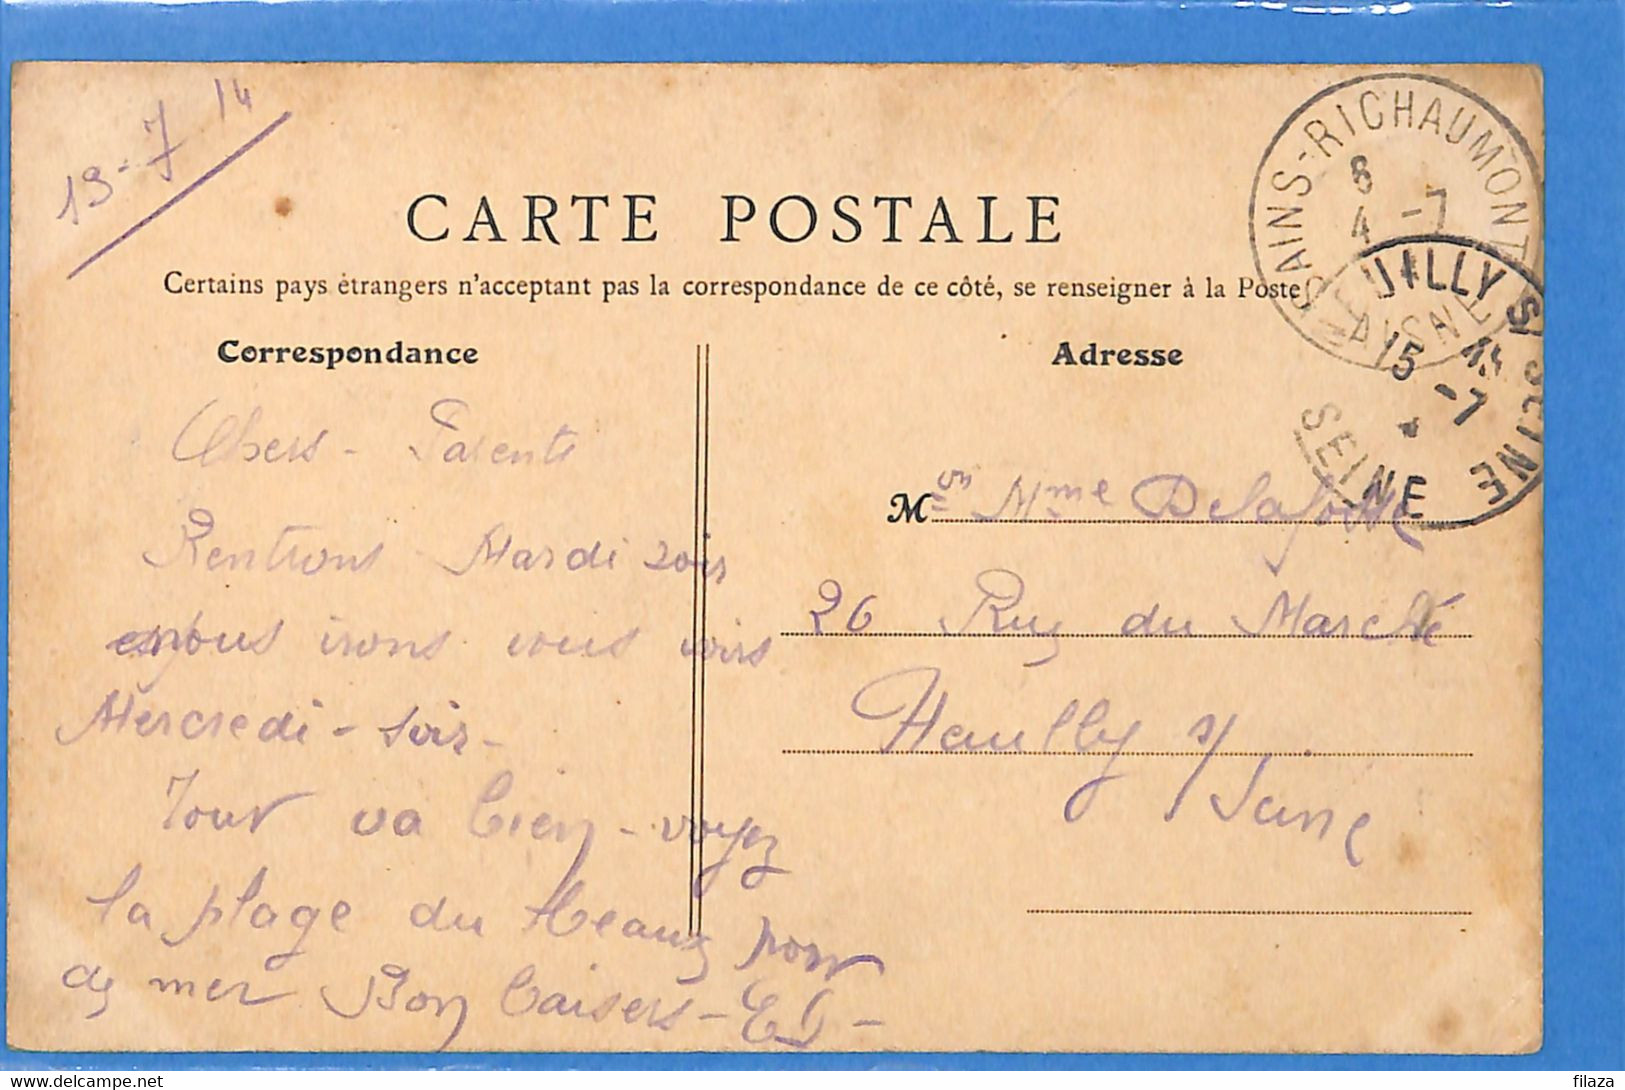 13-7 14
SAINS-RICHAUMONT
8
4 -7
AISNE
CARTE POSTALE
Certains pays étrangers n'acceptent pas la correspondance de ce côté, se renseigner à la Poste
NEUILLY S/ SEINE
15 -7
SEINE
Correspondance
Adresse
Chers - Parents
Rentrons Mardi soir
nous irons vous voirs
Mercredi - soir -
Tout va bien - voyez
la plage du
mer Bon Baisers - ED -
M Mme
26 Rue du Marché
Neuilly s/
Seine
filaza